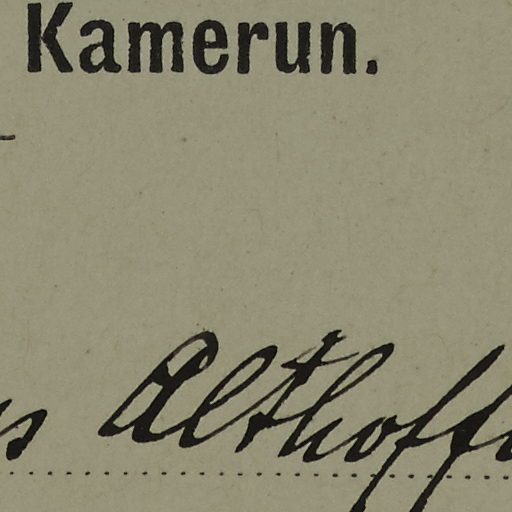 Kamerun.
Althoff